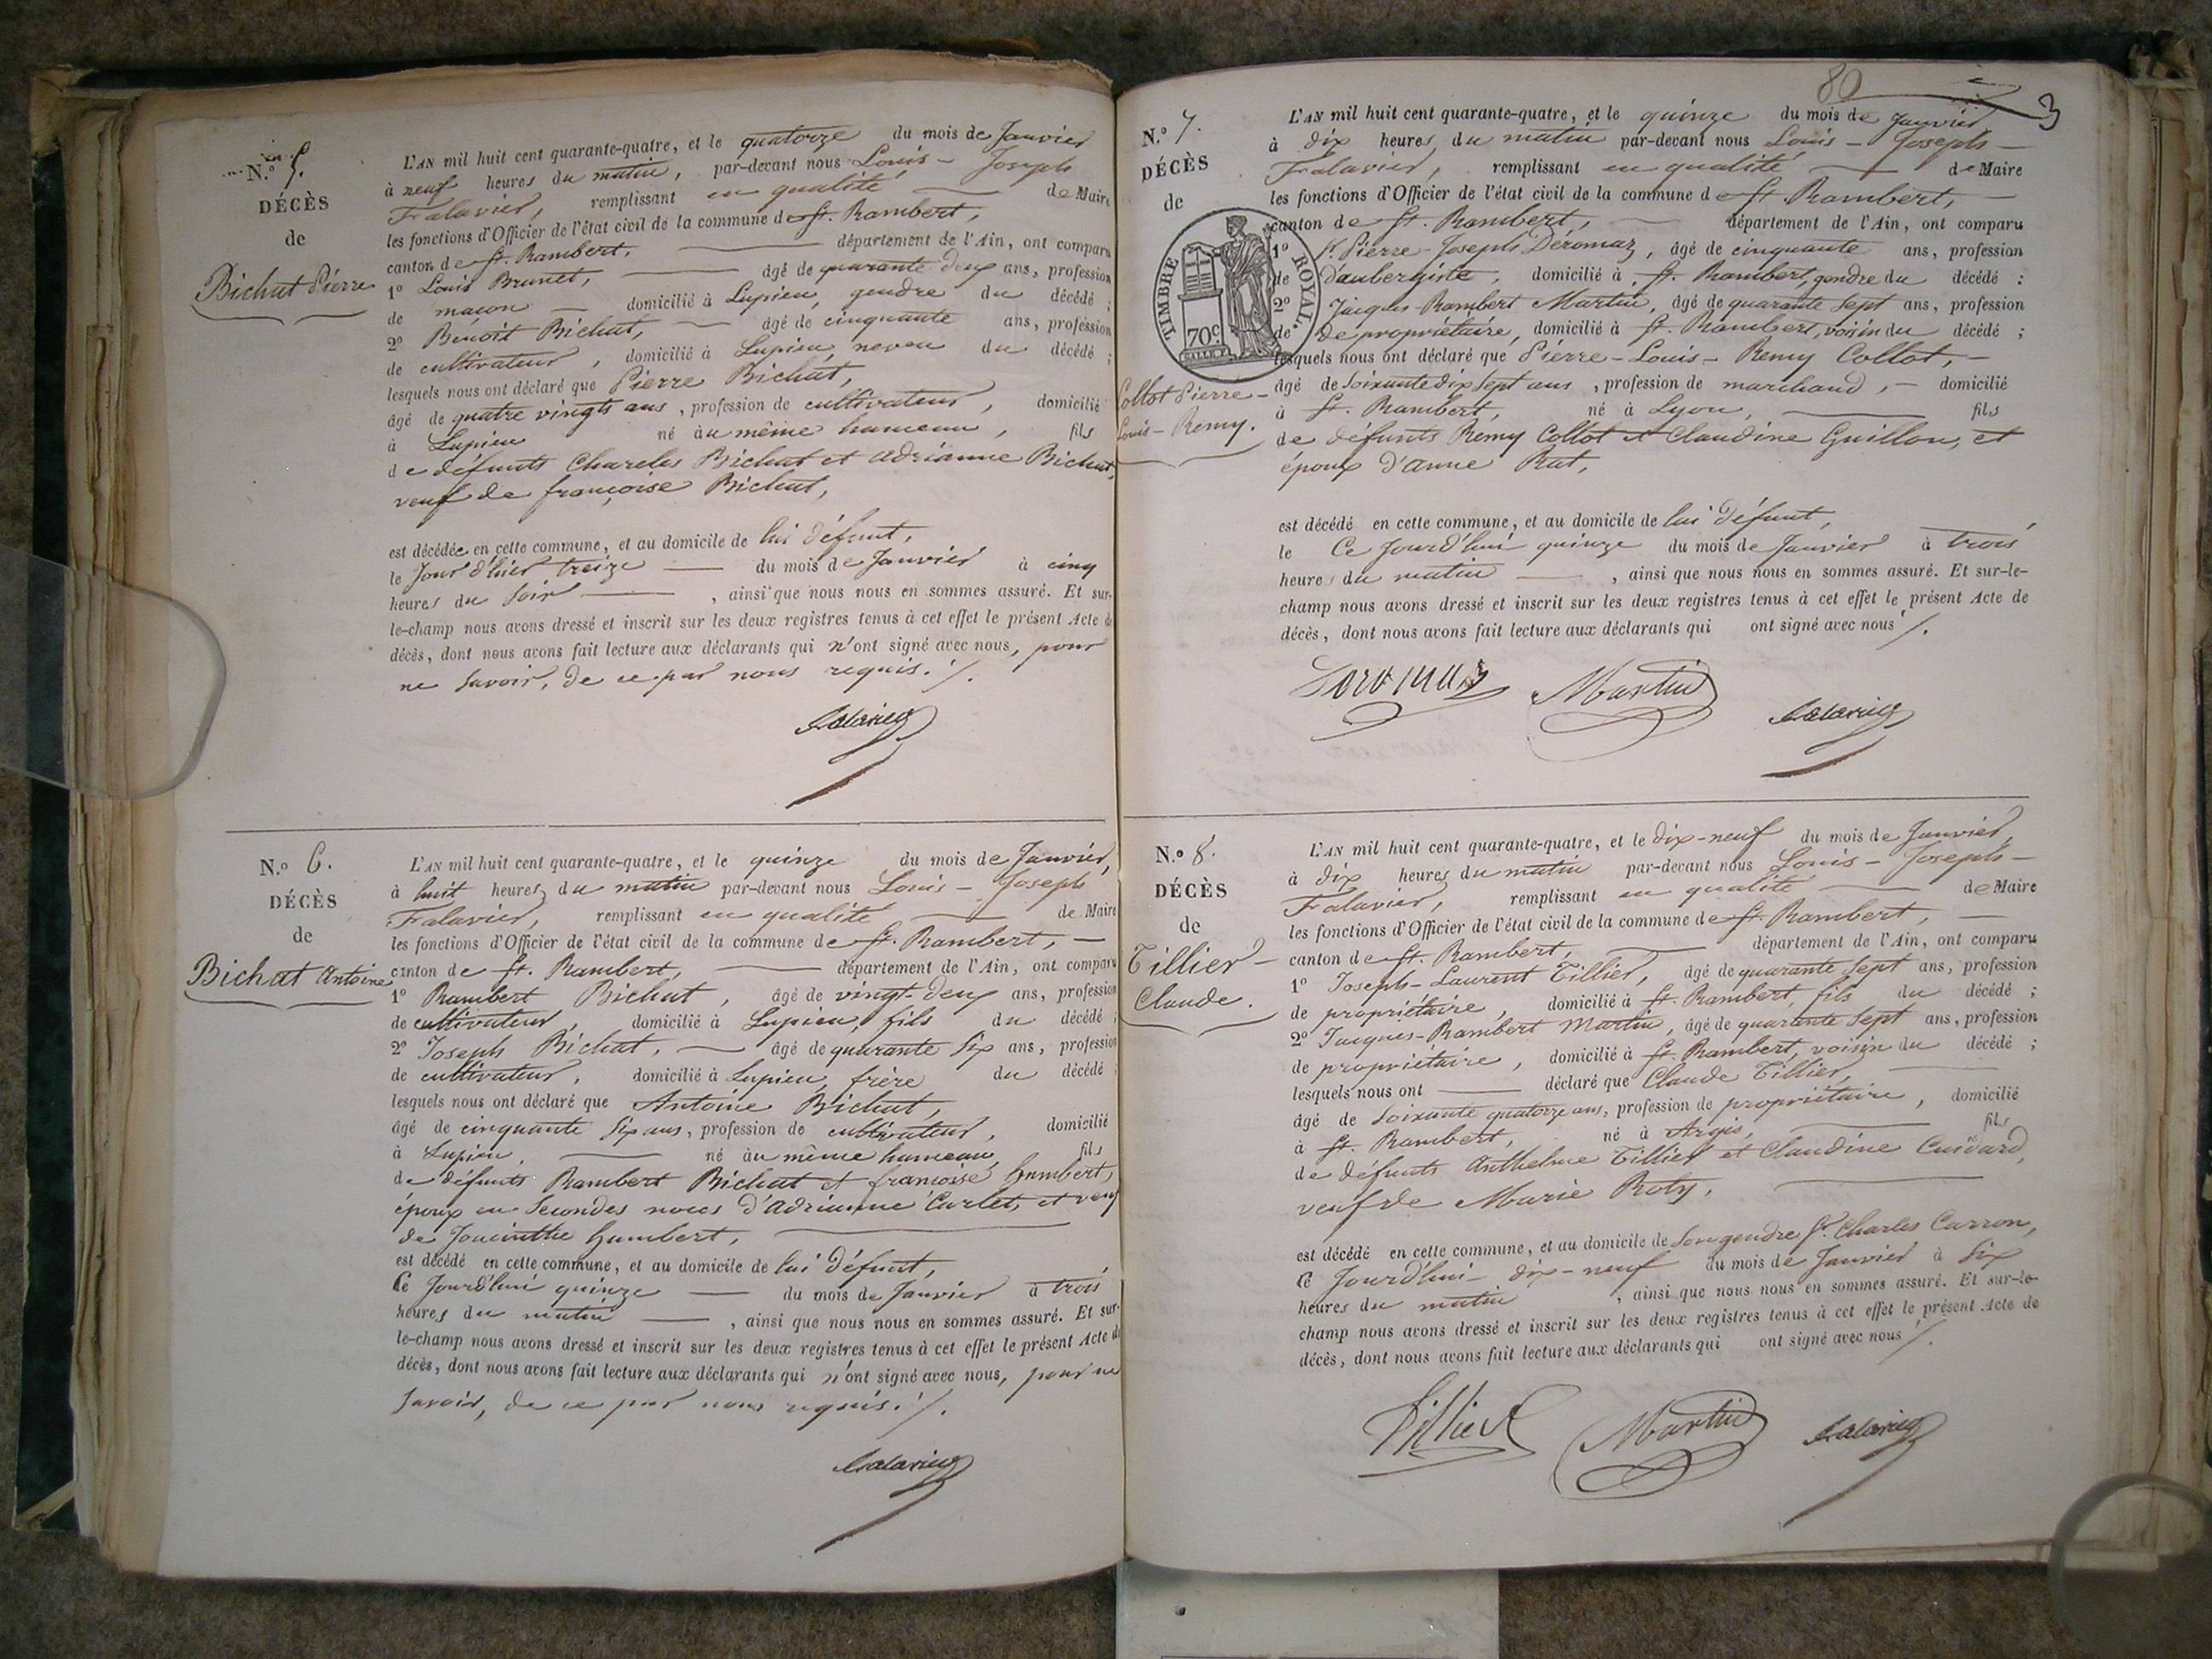 N.º 5.
DÉCÈS
de
Bichat Pierre
L'AN mil huit cent quarante-quatre, et le quatorze du mois de Janvier
à neuf heures du matin, par-devant nous Louis - Joseph
Falavier, remplissant en qualité de Maire
les fonctions d'Officier de l'état civil de la commune de St. Rambert,
canton de St. Rambert, département de l'Ain, ont comparu
1º Louis Brunet, âgé de quarante deux ans, profession
de maçon domicilié à Lupieu, gendre du décédé ;
2º Benoit Bichat, âgé de cinquante ans, profession
de cultivateur, domicilié à Lupieu, neveu du décédé ;
lesquels nous ont déclaré que Pierre Bichat,
âgé de quatre vingts ans, profession de cultivateur, domicilié
à Lupieu né au même hameau, fils
de défunts Charles Bichat et Adrianne Bichat,
veuf de françoise Bichat,
est décédée en cette commune, et au domicile de lui défunt,
le Jour d'hier treize du mois de Janvier à cinq
heures du soir, ainsi que nous nous en sommes assuré. Et sur-
le-champ nous avons dressé et inscrit sur les deux registres tenus à cet effet le présent Acte de
décès, dont nous avons fait lecture aux déclarants qui n'ont signé avec nous, pour
ne savoir, de ce par nous requis ./.
Falavier
N.º 6.
DÉCÈS
de
Bichat Antoine
L'AN mil huit cent quarante-quatre, et le quinze du mois de Janvier,
à huit heures du matin par-devant nous Louis - Joseph
Falavier, remplissant en qualité de Maire
les fonctions d'Officier de l'état civil de la commune de St. Rambert, -
canton de St. Rambert, département de l'Ain, ont comparu
1º Rambert Bichat, âgé de vingt-deux ans, profession
de cultivateur, domicilié à Lupieu, fils du décédé ;
2º Joseph Bichat, âgé de quarante six ans, profession
de cultivateur, domicilié à Lupieu, frère du décédé
lesquels nous ont déclaré que Antoine Bichat,
âgé de cinquante six ans, profession de cultivateur, domicilié
à Lupieu, né au même hameau, fils
de défunts Rambert Bichat et françoise humbert,
époux en secondes noces d'Adrianne Carlet, et veuf
de Jouinthe humbert,
est décédé en cette commune, et au domicile de lui défunt,
le Jourd'hui quinze du mois de Janvier à trois
heures du matin, ainsi que nous nous en sommes assuré. Et sur-
le-champ nous avons dressé et inscrit sur les deux registres tenus à cet effet le présent Acte de
décès, dont nous avons fait lecture aux déclarants qui n'ont signé avec nous, pour ne
savoir, de ce par nous requis ./.
Falavier
80
3
N.º 7.
DÉCÈS
de
TIMBRE ROYAL.
70c
Collot Pierre-
Louis-Remy.
L'AN mil huit cent quarante-quatre, et le quinze du mois de Janvier
à dix heures du matin par-devant nous Louis - Joseph -
Falavier, remplissant en qualité de Maire
les fonctions d'Officier de l'état civil de la commune de St. Rambert, -
canton de St. Rambert, département de l'Ain, ont comparu
1º Sr. Pierre-Joseph Déromaz, âgé de cinquante ans, profession
de d'aubergiste, domicilié à St. Rambert, gendre du décédé :
2º Jacques-Rambert Martin, âgé de quarante sept ans, profession
de de propriétaire, domicilié à St. Rambert, voisin du décédé ;
lesquels nous ont déclaré que Pierre-Louis-Remy Collot, -
âgé de soixante dix sept ans, profession de marchand, - domicilié
à St. Rambert, né à Lyon, fils
de défunts Rémy Collot et Claudine Guillon, et
époux d'anne Rat,
est décédé en cette commune, et au domicile de lui défunt,
le Ce Jourd'hui quinze du mois de Janvier à trois
heures du matin, ainsi que nous nous en sommes assuré. Et sur-le-
champ nous avons dressé et inscrit sur les deux registres tenus à cet effet le présent Acte de
décès, dont nous avons fait lecture aux déclarants qui ont signé avec nous ./.
Deromaz Martin Falavier
N.º 8.
DÉCÈS
de
Tillier-
Claude.
L'AN mil huit cent quarante-quatre, et le dix-neuf du mois de Janvier,
à dix heures du matin par-devant nous Louis - Joseph -
Falavier, remplissant en qualité de Maire
les fonctions d'Officier de l'état civil de la commune de St. Rambert, -
canton de St. Rambert, département de l'Ain, ont comparu
1º Joseph-Laurent Tillier, âgé de quarante sept ans, profession
de propriétaire, domicilié à St. Rambert, fils du décédé ;
2º Jacques-Rambert Martin, âgé de quarante sept ans, profession
de propriétaire, domicilié à St. Rambert, voisin du décédé ;
lesquels nous ont déclaré que Claude Tillier,
âgé de soixante quatorze ans, profession de propriétaire, domicilié
à St. Rambert, né à Argis, fils
de défunts Anthelme Tillier et Claudine Cuidard,
veuf de Marie Roty,
est décédé en cette commune, et au domicile de son gendre Sr. Charles Carron,
le Jourd'hui dix-neuf du mois de Janvier à six
heures du matin, ainsi que nous nous en sommes assuré. Et sur-le-
champ nous avons dressé et inscrit sur les deux registres tenus à cet effet le présent Acte de
décès, dont nous avons fait lecture aux déclarants qui ont signé avec nous ./.
Tillier Martin Falavier